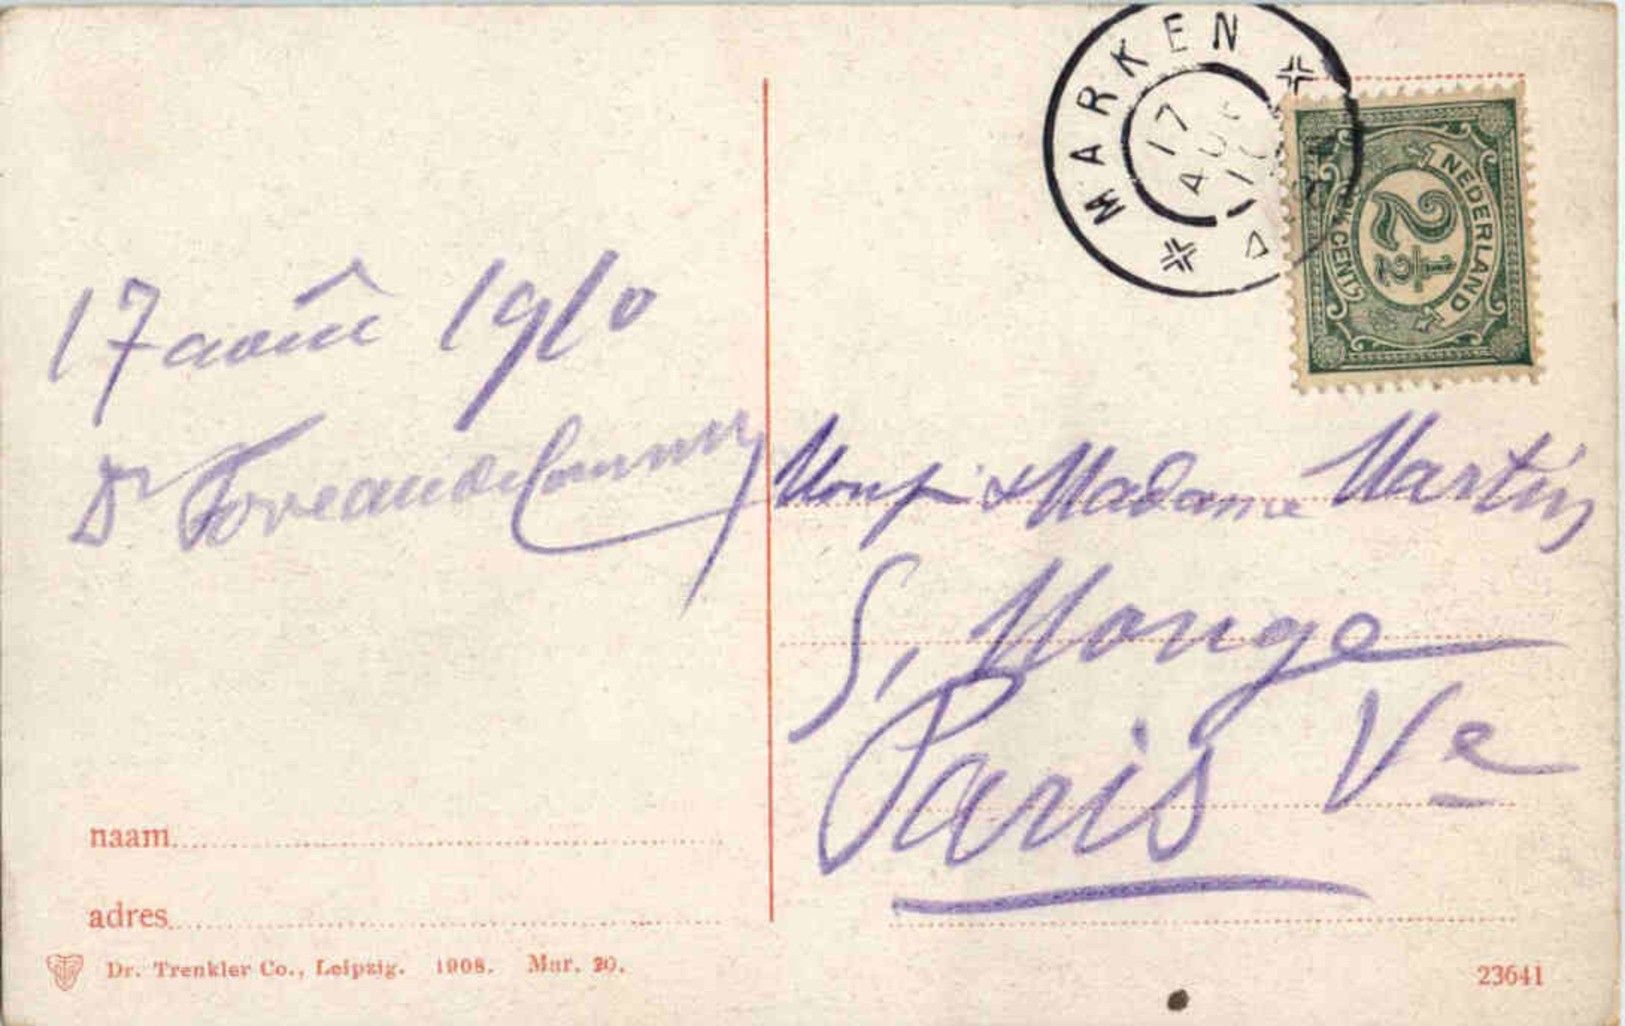 MARKEN
17
AUG
10
NEDERLAND
2½
CENT
17 août 1910
Dr Foveau de Courmelles
Monsr & Madame Martin
5, Monge
Paris Ve
naam
adres
Dr. Trenkler Co., Leipzig. 1908. Mar. 20.
23641